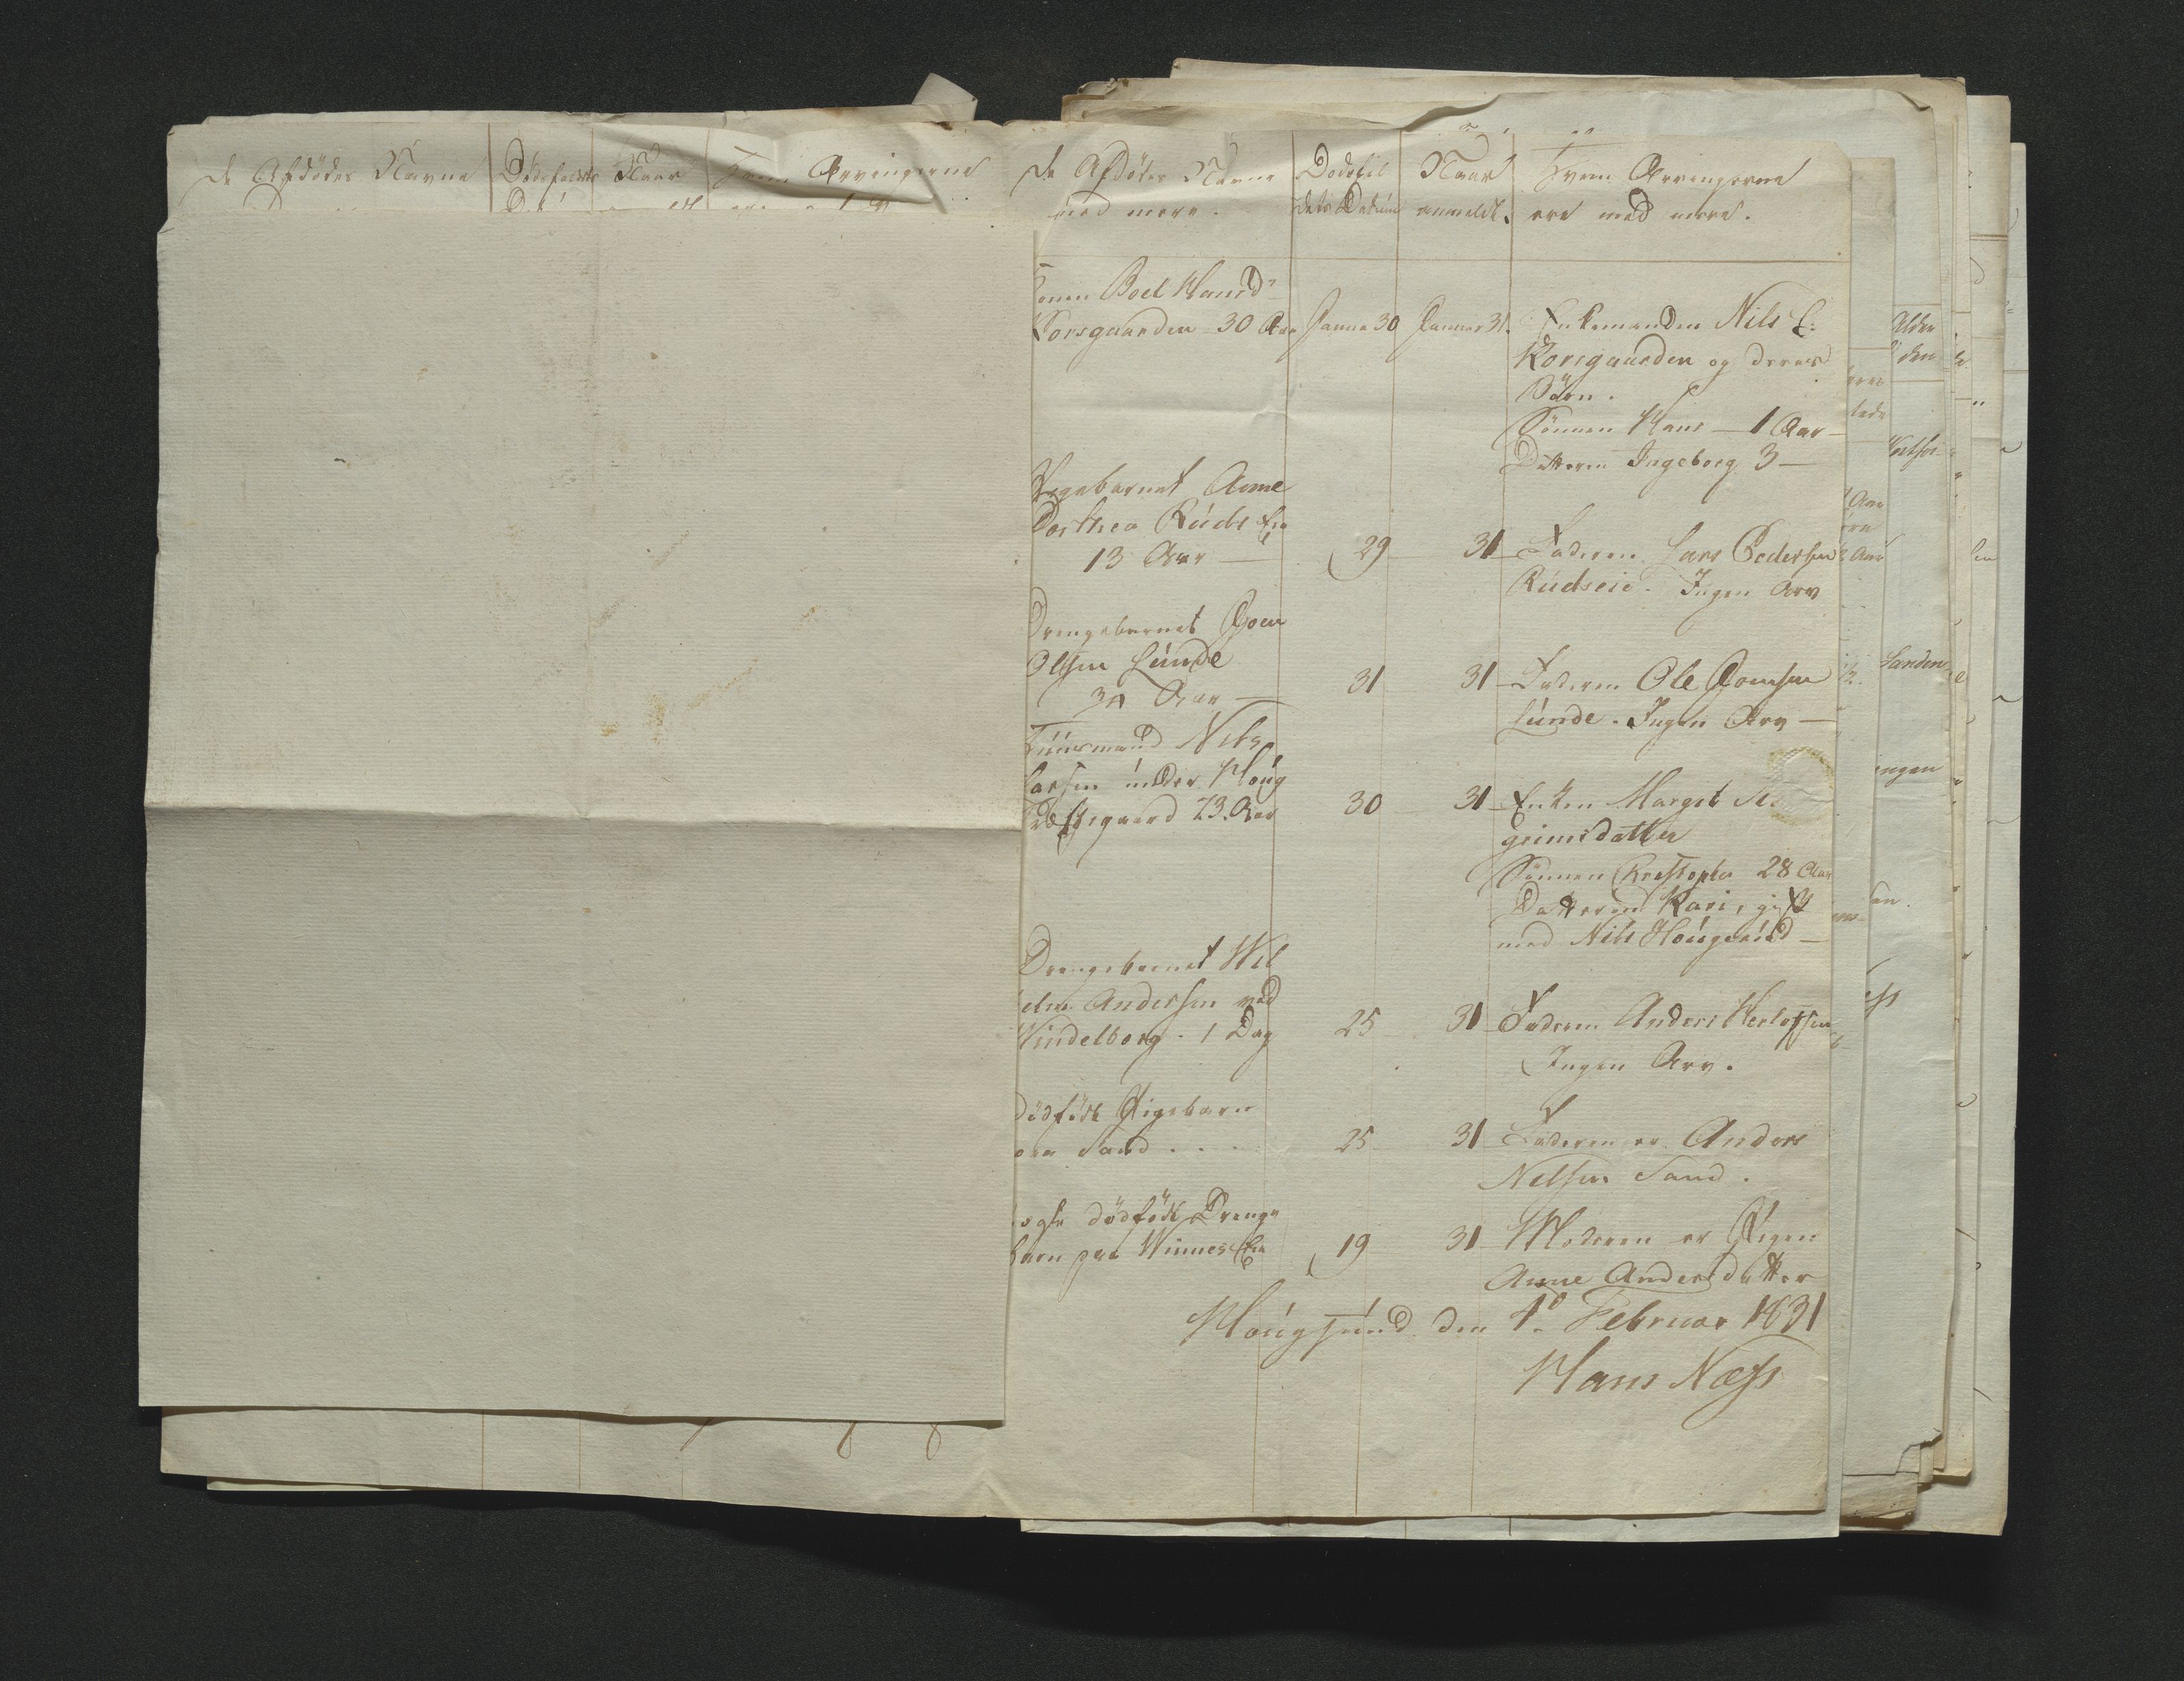 De Afdødes Navne
Dødsfaldets
Naar
Hvem Arvingerne
De Afdødes Navne
med mere.
Dødsfal
dets Datúm
Naar
anmeldt.
Hvem Arvingerne
ere med mere.
Konen Boel Hansd
Korsgaarden 30 Aar Januar 30 Januar 31. Enkemanden Nils E:
Korsgaarden og deres
Børn.
Sønnen Hans — 1 Aar
Datteren Ingeborg 3 —
Pigebarnet Anne
Dorthea Rúds Eie
13 Aar — 29 31 Faderen Lars Pedersen
Rúdseie. Ingen Arv
Drengebarnet Joen
Olsen Lúnde
Aar — 31 31 Faderen Ole Joensen
Lúnde. Ingen Arv —
Húúsmand Nils
Larsen únder Hoúg
Præstegaard 73. Aar 30 31 Enken Margit
grimsdatter
Sønnen Christopher 28 Aar
Datteren Kari, gift
med Nils Hoúgerúd —
Drengebarnet Wil
helm Andersen ved
Windelborg. 1 Dag 25 31 Faderen Anders Herlofsen
Ingen Arv.
Dødfødt Pigebarn
paa Sand . . . 25 31 Faderen er Anders
Nelsen Sand.
dødfødt Drenge
barn paa Winnes Eie 19 31 Moderen er Pigen
Anne Andersdatter
Hoúgsúnd den 1. Februar 1831
Hans Næss
Alder
den
Aar
Landen
ingen